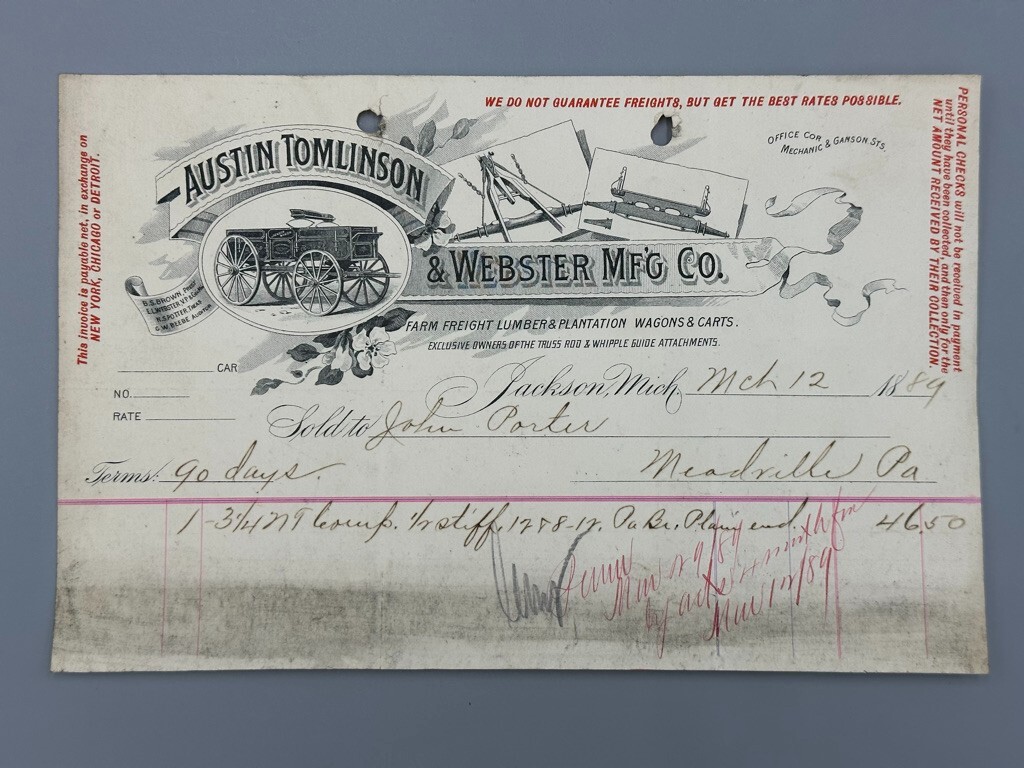 WE DO NOT GUARANTEE FREIGHTS, BUT GET THE BEST RATES POSSIBLE.
This invoice is payable net, in exchange on
NEW YORK, CHICAGO or DETROIT.
PERSONAL CHECKS will not be received in payment
until they have been collected, and then only for the
NET AMOUNT RECEIVED BY THEIR COLLECTION.
OFFICE COR
MECHANIC & GANSON STS.
AUSTIN TOMLINSON
& WEBSTER M'F'G CO.
B.S. BROWN, PREST
E.L. WEBSTER, V.P. &
N.S. POTTER, TREAS
G.W. BEEBE AUDITOR
FARM FREIGHT LUMBER & PLANTATION WAGONS & CARTS.
EXCLUSIVE OWNERS OF THE TRUSS ROD & WHIPPLE GUIDE ATTACHMENTS.
CAR
NO.
RATE
Jackson, Mich. Mch 12 1889
Sold to John Porter
Terms: 90 days. Meadville Pa
1 - 3 1/4 Comp. stiff, Plain end. 46.50
Mar 29/89
by 4 month
Mar 12/89